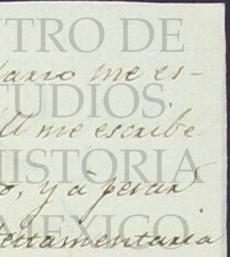 TRO DE
tario me es-
TUDIOS
U me escribe
HISTORIA
o, y á pesar
MEXICO
testamentaria